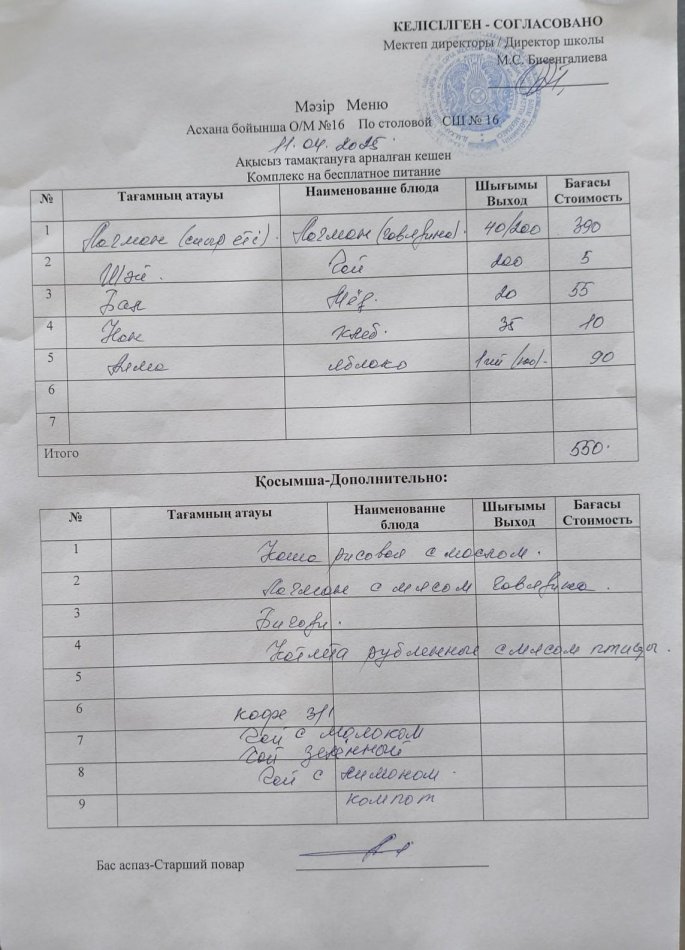 КЕЛІСІЛГЕН - СОГЛАСОВАНО
Мектеп директоры / Директор школы
М.С. Бисенгалиева
Мәзір Меню
Асхана бойынша О/М №16 По столовой СШ № 16
11.04.2025.
Ақысыз тамақтануға арналған кешен
Комплекс на бесплатное питание
№ Тағамның атауы Наименованне блюда Шығымы Выход Бағасы Стоимость
1 Лагман (сиыр еті). Лагман (говядина). 40/200 390
2 Шәй. Чай 200 5
3 Бал Мёд. 20 55
4 Нан хлеб. 35 10
5 Алма яблоко 1шт (100). 90
6
7
Итого 550.
Қосымша-Дополнительно:
№ Тағамның атауы Наименованне блюда Шығымы Выход Бағасы Стоимость
1 Каша рисовая с маслом.
2 Лагман с мясом говядина.
3 Бигоди.
4 Котлета рубленные с мясом птицы.
5
6 кофе 3/1
7 Чай с молоком
Чай зеленный
8 Чай с лимоном.
9 компот
Бас аспаз-Старший повар